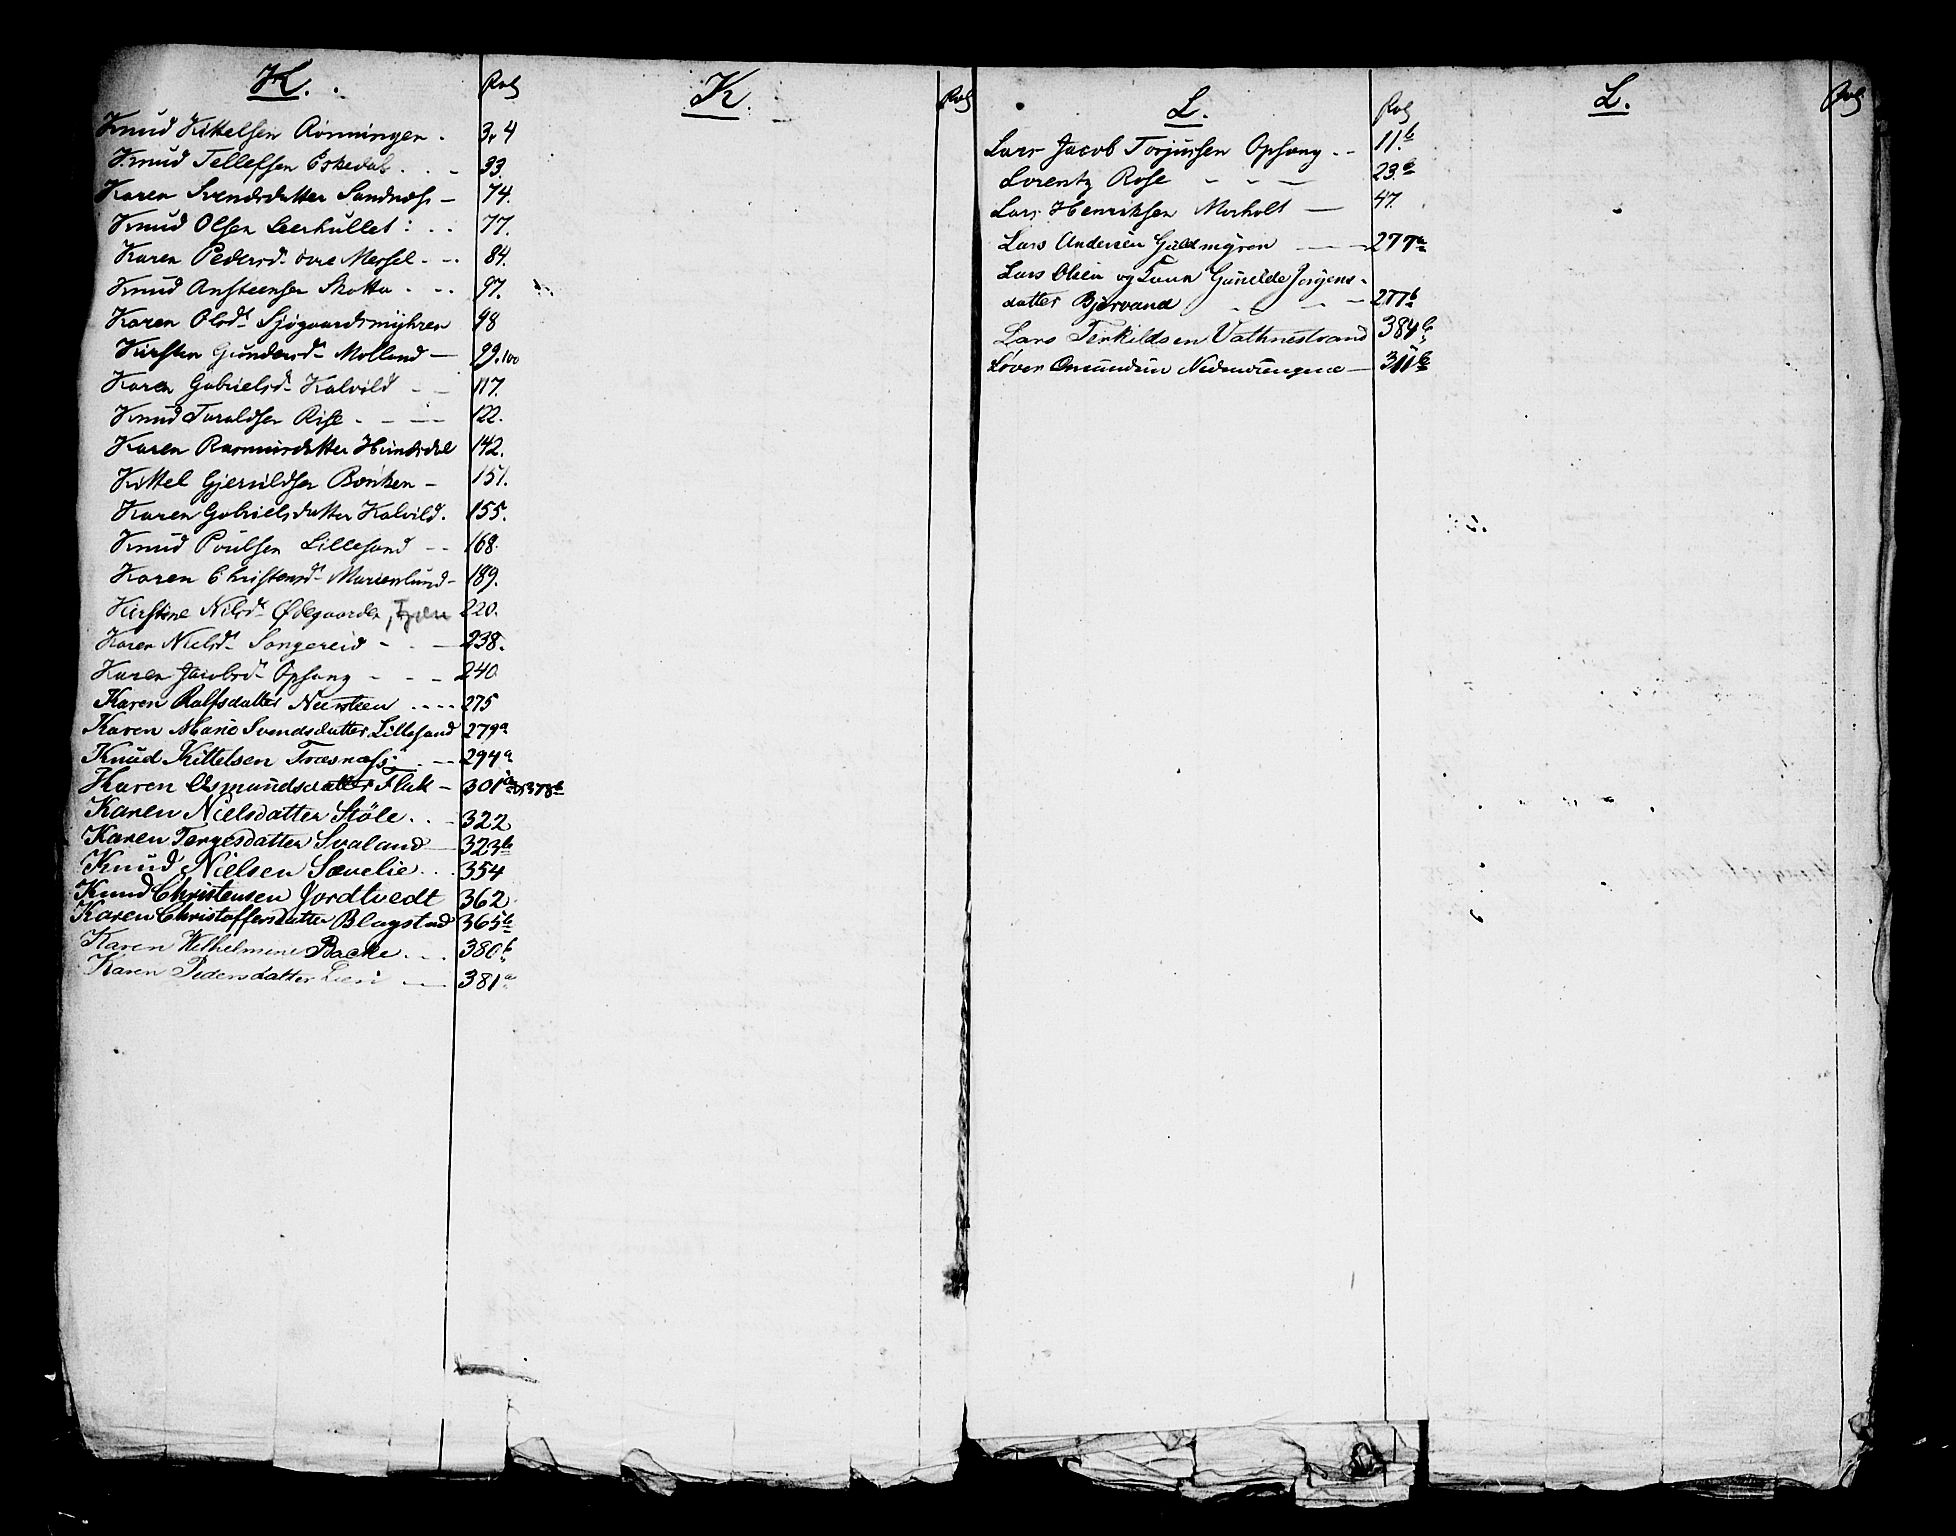 K.
Pag
Knud Kittelsen Rönningen . 3, 4
Knud Tellefsen Eskedal . . - 33.
Karen Svendsdatter Sandnæs - 74.
Knud Olsen Leerhullet : . . 77.
Karen Pedersd. övre Mersel . - . 84.
Knud Ansteensen Skotta . - . . 97.
Karen Olsd. Sjögaardsmyhren 98
Kirsten Gundersd. Molland - 99.100
Karen Gabrielsd. Kalvild - - 117.
Knud Taraldsen Rise . - - - 122.
Karen Rasmusdatter Hundsdal 142.
Kittel Gjeruldsen Bönken - 151.
Karen Gabrielsdatter Kalvild. 155.
Knud Poulsen Lillesand - - 168.
Karen Christensd. Marienlund - 189.
Kirstine Nilsd. Ødegaarden, 220.
Karen Nielsd. Songereid - . - 238.
Karen Jacobsd. Opsang - - - 240.
Karen Rolfsdatter Neersteen . . . . 275
Karen Marie Svendsdatter Lillesand 279a
Knud Kittelsen Træsnæs . - - 294a
Karen Osmundsdatter Flak - 301a 378b
Karen Nielsdatter Støle . . - 322
Karen Tergesdatter Svaland - 323b
Knud Nielsen Sævelie . . . 354
Knud Christensen Jordtvedt 362
Karen Christoffersdatter Blagstad 365b
Karen Wilhelmine Backe . . . 380b
Karen Pedersdatter Lien - 381a
K.
Pag
L.
Pag
Lars Jacob Torjussen Opsang . - 11.b
Lorentz Rose - - - 23.b
Lars Henriksen Morholt - 47.
Lars Andersen Guldmyren - - - 277a
Lars Olsen og Kone Gunilde Jörgens-
datter Bjorvand - - - - 277b
Lars Terkildsen Vathnestrand 384b
Löver Omundsen 311b
L.
Pag